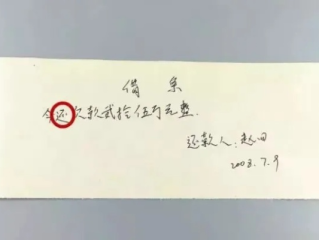 借条
今还欠款贰拾伍万元整.
还款人:赵田
2003.7.9